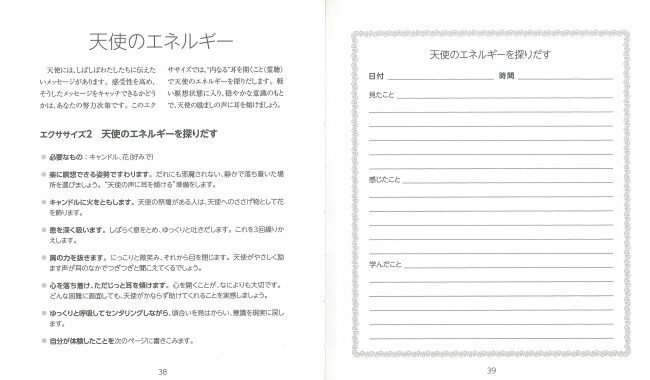 天使のエネルギー
天使には、しばしばわたしたちに伝えた
いメッセージがあります。感受性を高め、
そうしたメッセージをキャッチできるかどう
かは、あなたの努力次第です。このエク
ササイズでは、“内なる”耳を開くこと(霊聴)
で天使のエネルギーを探りだします。軽
い瞑想状態に入り、穏やかな意識のもと
で、天使の励ましの声に耳を傾けましょう。
エクササイズ2 天使のエネルギーを探りだす
● 必要なもの：キャンドル、花(好みで)
● 楽に瞑想できる姿勢ですわります。だれにも邪魔されない、静かで落ち着いた場
所を選びましょう。“天使の声に耳を傾ける”準備をします。
● キャンドルに火をともします。天使の祭壇がある人は、天使へのささげ物として花
を飾ります。
● 息を深く吸います。しばらく息をとめ、ゆっくりと吐きだします。これを3回繰りか
えします。
● 肩の力を抜きます。にっこりと微笑み、それから目を閉じます。天使がやさしく励
ます声が耳のなかでつぎつぎと聞こえてくるでしょう。
● 心を落ち着け、ただじっと耳を傾けます。心を開くことが、なによりも大切です。
どんな困難に直面しても、天使がかならず助けてくれることを実感しましょう。
● ゆっくりと呼吸してセンタリングしながら、頃合いを見はからい、意識を現実に戻し
ます。
● 自分が体験したことを次のページに書きこみます。
38
天使のエネルギーを探りだす
日付 時間
見たこと
感じたこと
学んだこと
39